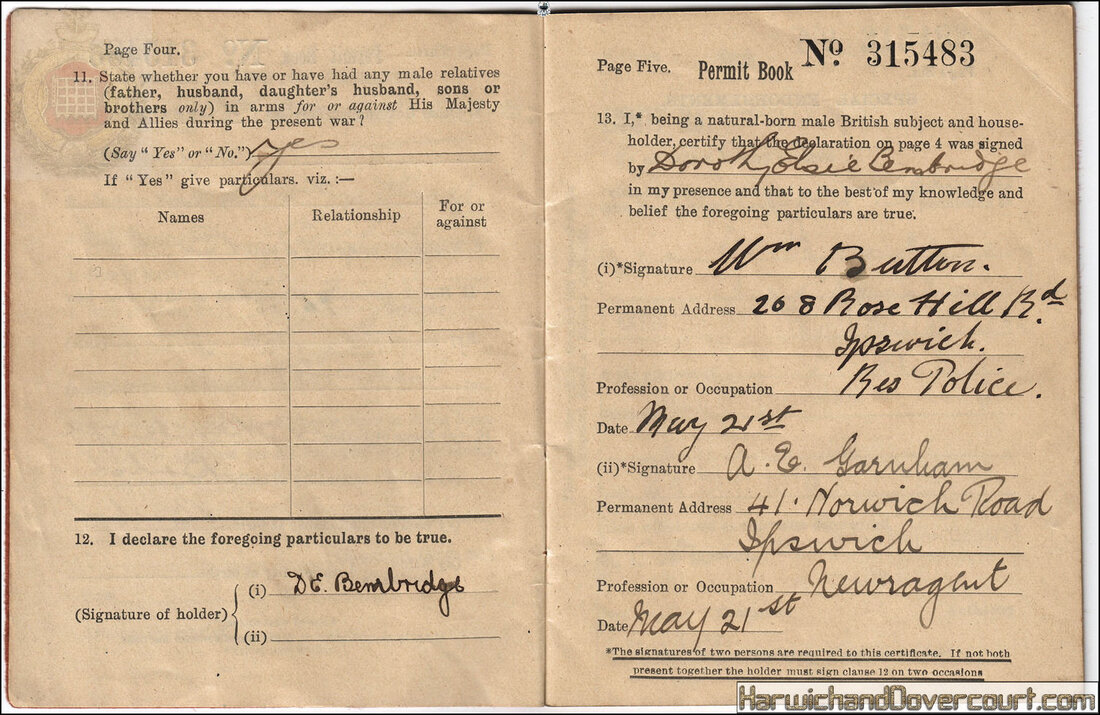 Page Four.
11. State whether you have or have had any male relatives
(father, husband, daughter's husband, sons or
brothers only) in arms for or against His Majesty
and Allies during the present war?
(Say "Yes" or "No.") yes
If "Yes" give particulars. viz. :—
Names Relationship For or
against
12. I declare the foregoing particulars to be true.
(Signature of holder) (i) D E. Bembridge
(ii)
Page Five. Permit Book No 315483
13. I,* being a natural-born male British subject and house-
holder, certify that the declaration on page 4 was signed
by Dorothy Elsie Bembridge
in my presence and that to the best of my knowledge and
belief the foregoing particulars are true.
(i)*Signature Wm Button.
Permanent Address 268 Rose Hill Rd.
Ipswich.
Profession or Occupation Res Police.
Date May 21st
(ii)*Signature A. E. Garnham
Permanent Address 41. Norwich Road
Ipswich
Profession or Occupation Newsagent
Date May 21st
*The signatures of two persons are required to this certificate. If not both
present together the holder must sign clause 12 on two occasions
HarwichandDovercourt.com